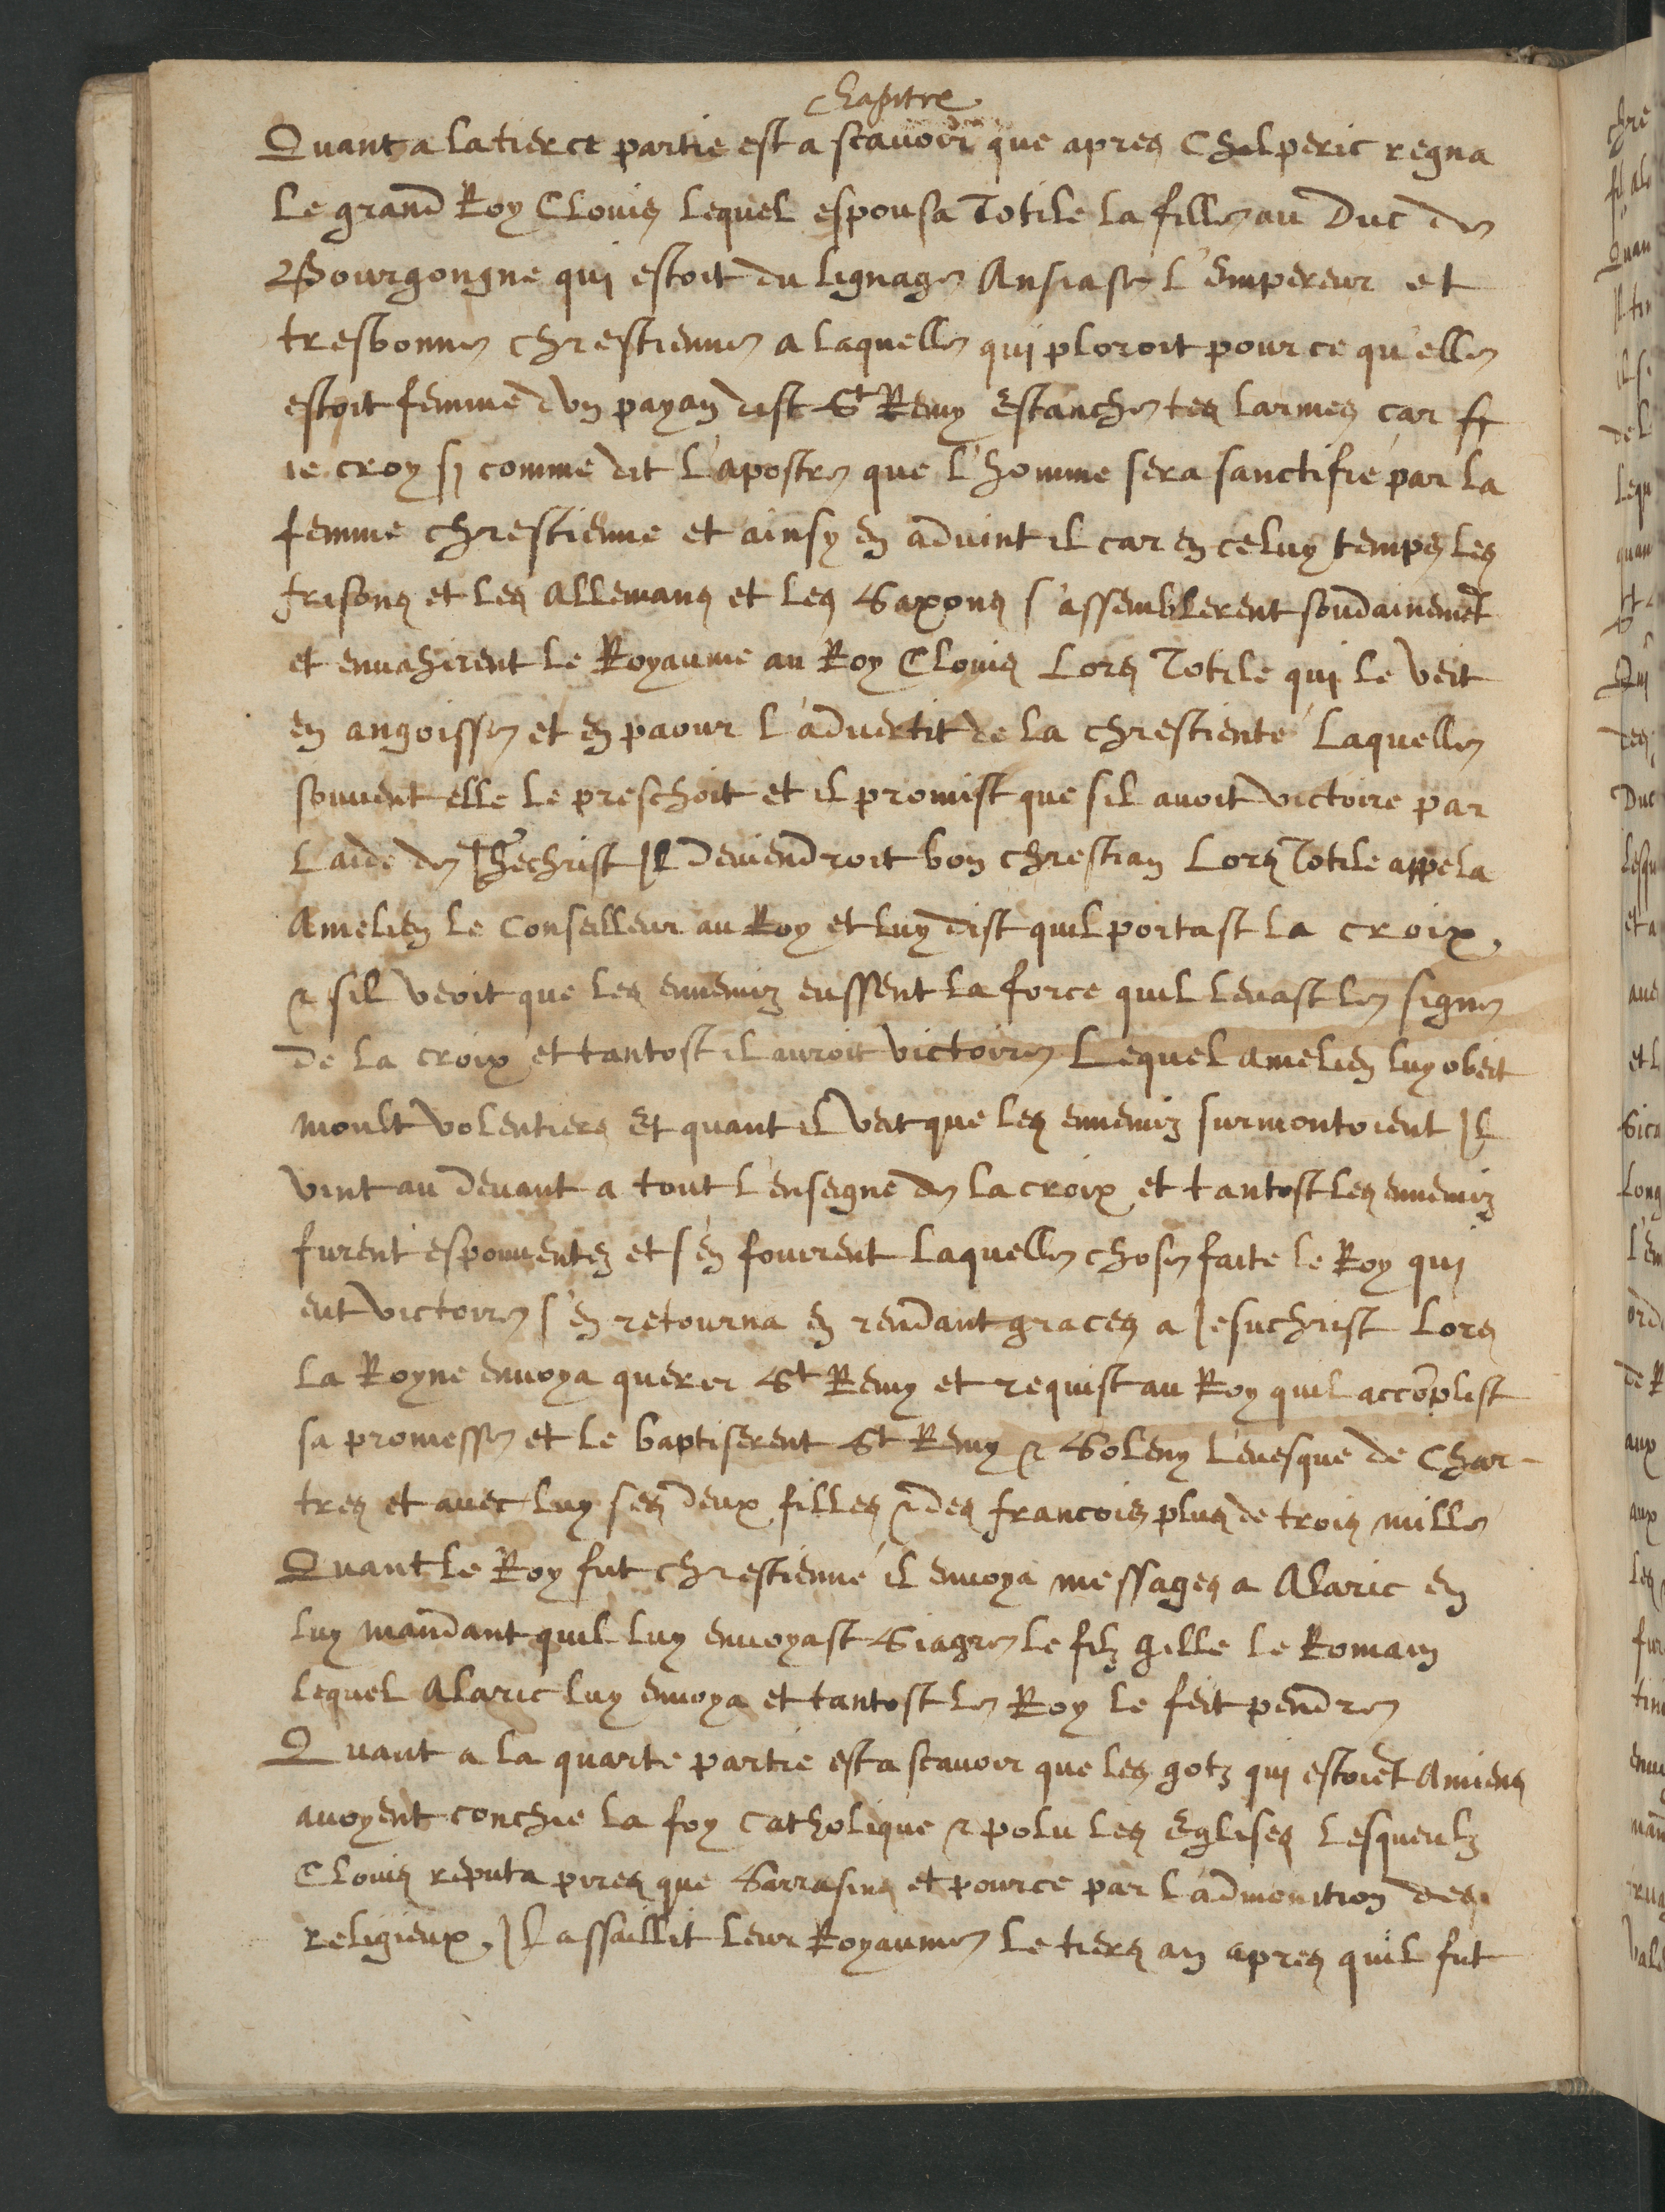 Chapitre
Quant a la tierce partie est a scavoir que apres Chilperic regna
Le grand Roy Clovis lequel espousa Totile la fille au Duc de
Bourgongne qui estoit du lignage Ansiase l'Empereur et
tresbonne chrestienne a laquelle qui ploroit pour ce qu'elle
estoit femme dun payan dist St Remy Estanche tes larmes car
ie croy si comme dit l'apostre que l'homme sera sanctifie par la
femme chrestienne et ainsy en advint il car en celuy temps les
frisons et les Allemans et les Saxons s'assemblerent soudainemēt
et envahirent le Royaume au Roy Clovis Lors Totile qui le veit
en angoisse et en paour l'advertit de la chrestienté laquelle
souvent elle le preschoit et il promist que sil avoit victoire par
laide de Jhechrist Il deviendroit bon chrestian Lors Totile appela
Amelien le Conseilleur au Roy et luy dist quil portast la croix,
& sil veoit que les ennemiz eussent la force quil levast le signe
de la croix et tantost il auroit victoire Lequel Amelien luy obeit
moult volentiers Et quant il veit que les ennemiz surmontoient Il
vint au devant a tout l'enseigne de la croix et tantost les ennemiz
furent espouventez et s'en fouirent laquelle chose faite le Roy qui
eut victoire s'en retourna en rendant graces a Jesuchrist Lors
la Royne envoya querir St Remy et requist au Roy quil accōplist
sa promesse et le baptiserent St Remy & Soleny l'evesque de Char-
tres et avec luy ses deux filles & des francois plus de trois mille
Quant le Roy fut chrestienné il envoya messages a Alaric en
luy mandant quil luy envoyast Siagre le filz gille le Romain
lequel Alaric luy envoya et tantost le Roy le feit pendre
Quant a la quarte partie est a scavoir que les gotz qui estoiēt Amiens
avoyent conchie la foy catholique & polu les Eglises lesqueulz
Clovis reputa pires que Sarrasins et pource par l'admonition des
religieux, Il assaillit leur Royaume le tiers an apres quil fut